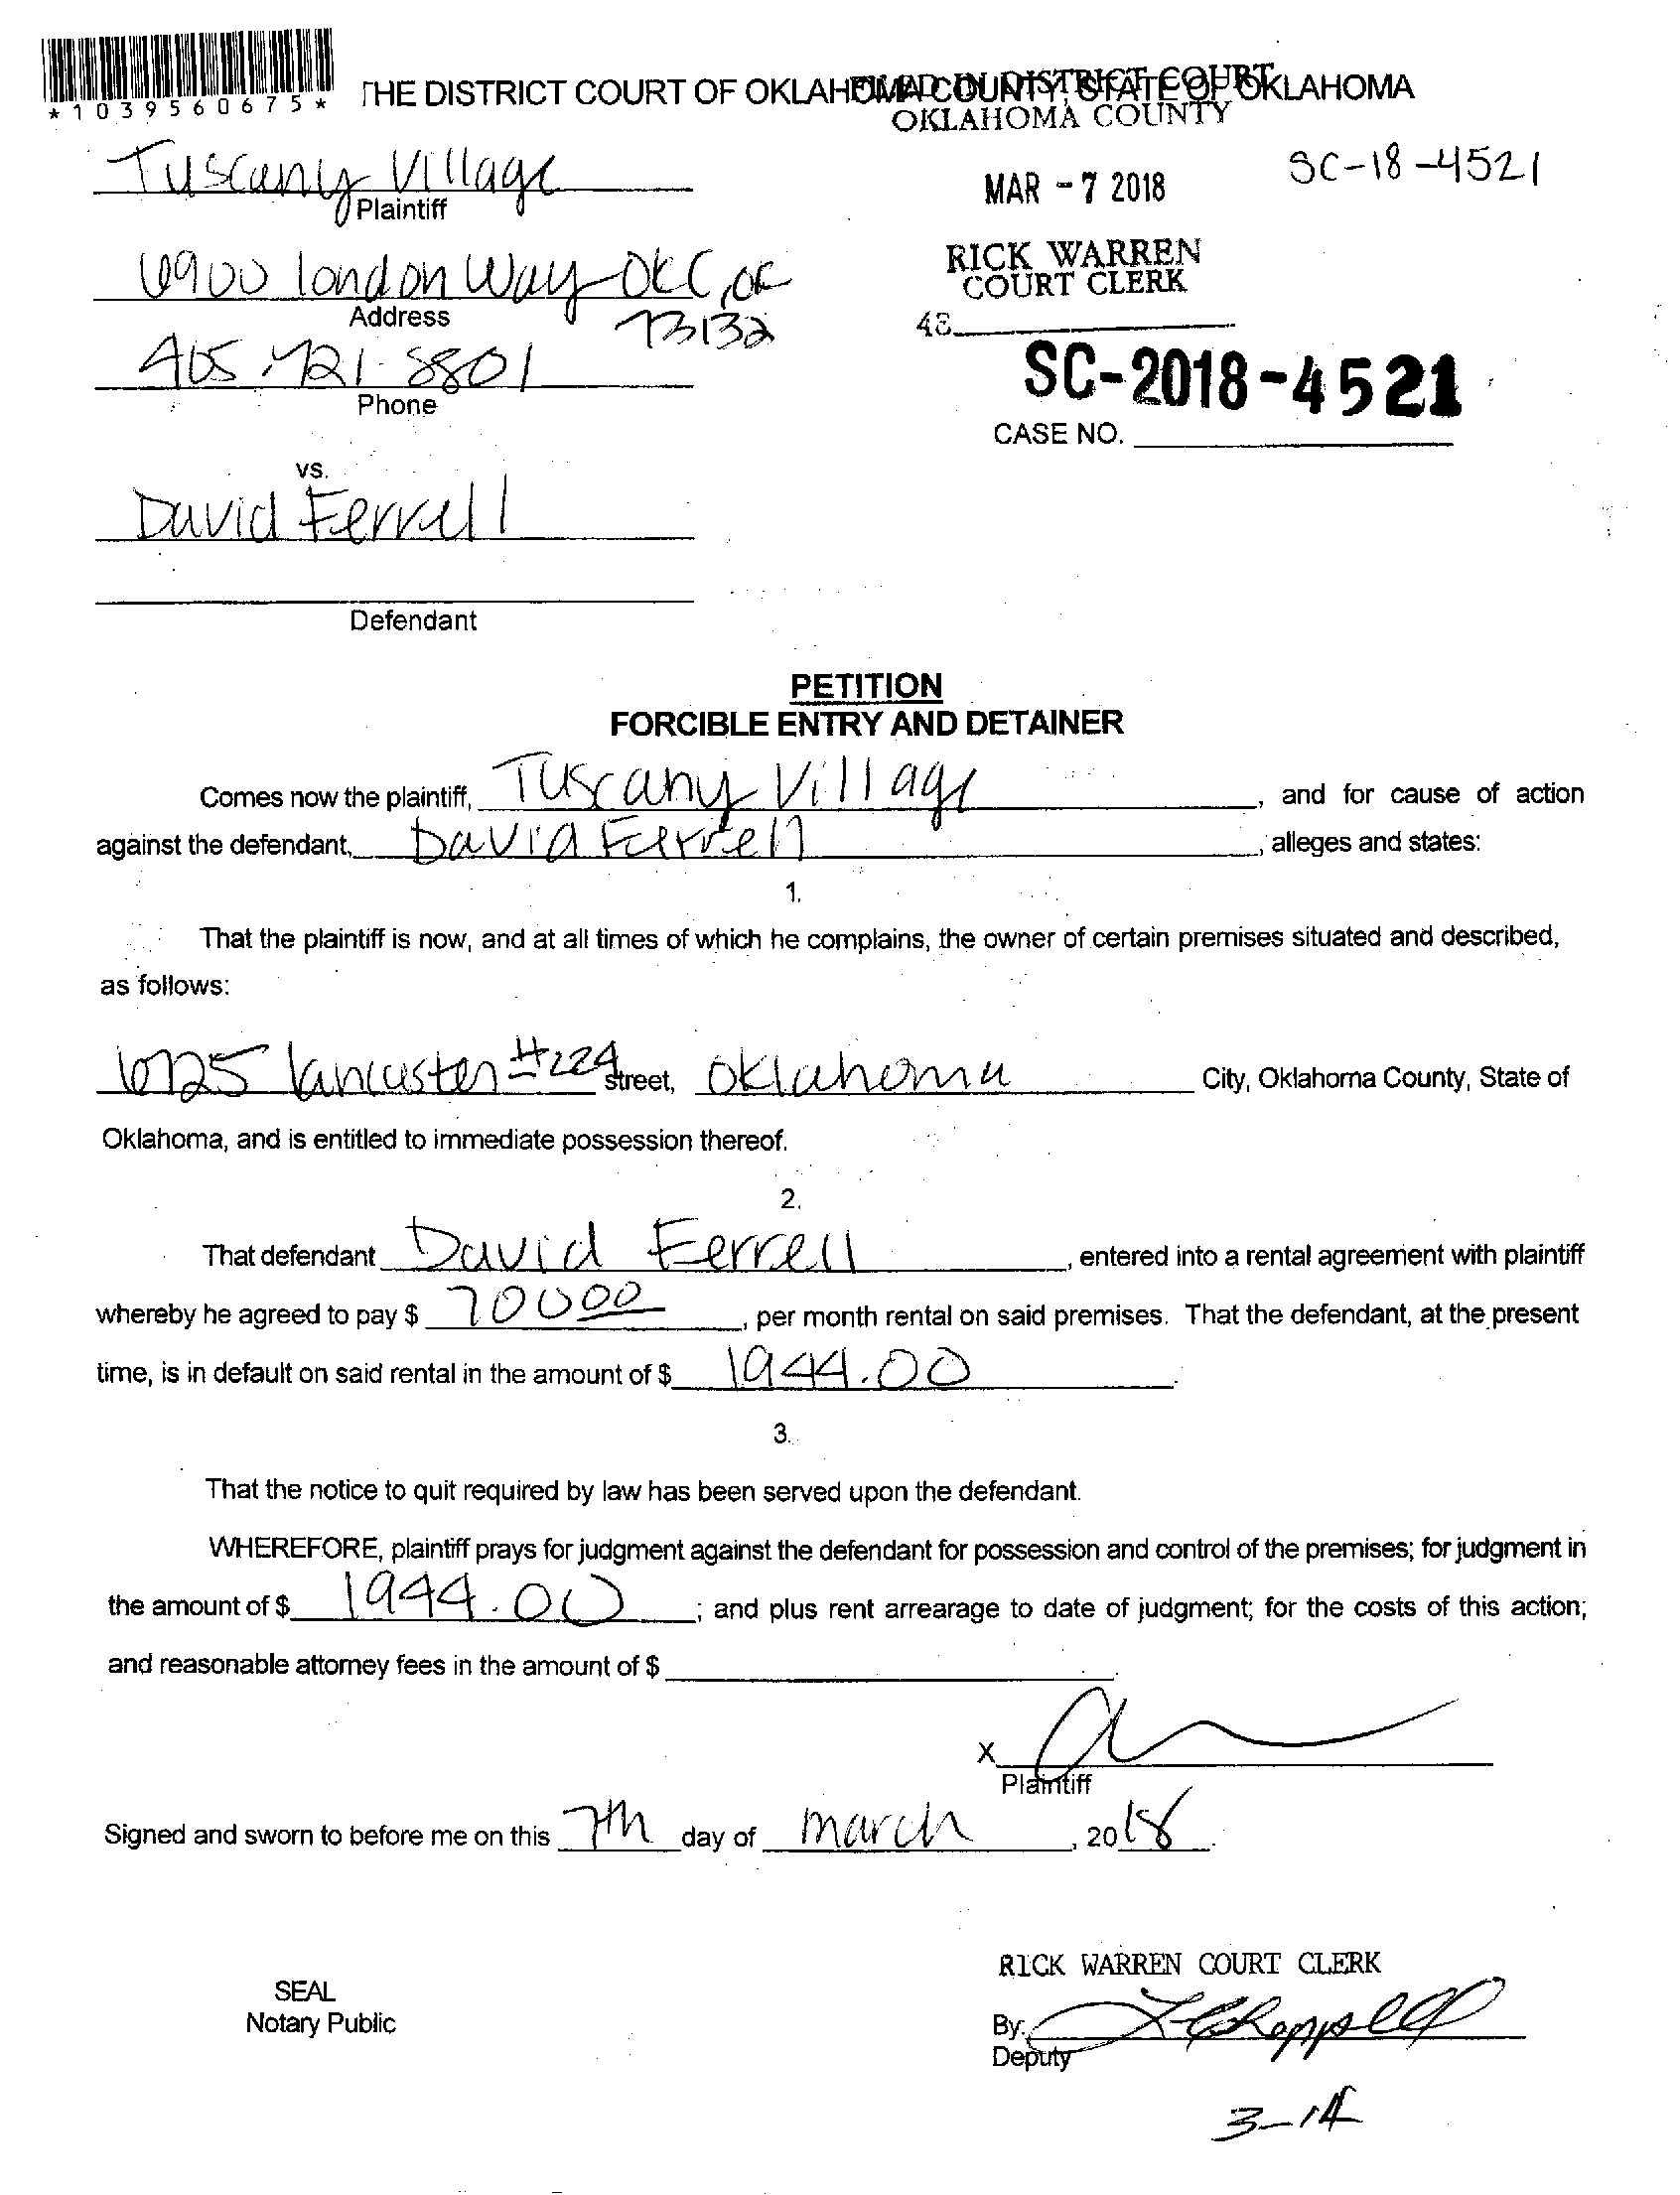 *1039560675*
THE DISTRICT COURT OF OKLAHOMA COUNTY, STATE OF OKLAHOMA
FILED IN DISTRICT COURT
OKLAHOMA COUNTY
Tuscany Village
Plaintiff
MAR - 7 2018
SC-18-4521
6900 london Way OKC, OK
73132
Address
RICK WARREN
COURT CLERK
48
405.721.8801
Phone
SC-2018-4521
CASE NO.
vs.
David Ferrell
Defendant
PETITION
FORCIBLE ENTRY AND DETAINER
Comes now the plaintiff, Tuscany Village, and for cause of action
against the defendant, David Ferrell, alleges and states:
1.
That the plaintiff is now, and at all times of which he complains, the owner of certain premises situated and described,
as follows:
6725 lancaster #224 street, Oklahoma City, Oklahoma County, State of
Oklahoma, and is entitled to immediate possession thereof.
2.
That defendant David Ferrell, entered into a rental agreement with plaintiff
whereby he agreed to pay $ 700 00, per month rental on said premises. That the defendant, at the present
time, is in default on said rental in the amount of $ 1944.00.
3.
That the notice to quit required by law has been served upon the defendant.
WHEREFORE, plaintiff prays for judgment against the defendant for possession and control of the premises; for judgment in
the amount of $ 1944.00; and plus rent arrearage to date of judgment; for the costs of this action;
and reasonable attorney fees in the amount of $
X
Plaintiff
Signed and sworn to before me on this 7th day of march, 2018.
RICK WARREN COURT CLERK
SEAL
Notary Public
By:
Deputy
3-14